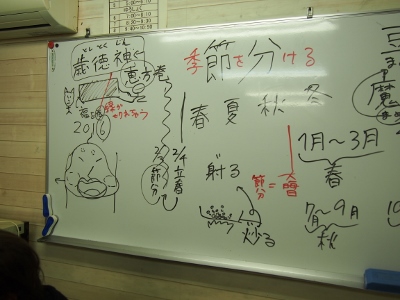 とし とく じん
歳徳神
恵方巻
福を
縁が
きれちゃう
2016
2/3 節分
2/4 立春
季節を分ける
春 夏 秋 冬
射る
炒る
節分=
1月〜3月
春
7月〜9月
秋
10
豆
ま
魔